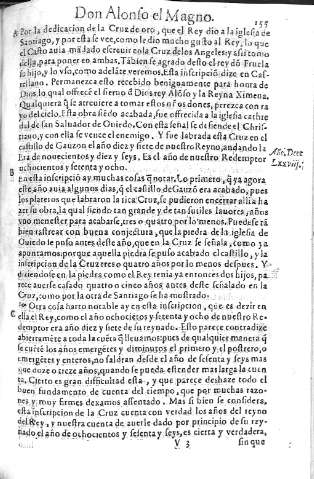 Don Alonso el Magno. 155
A Por la dedicacion de la Cruz de oro, que el Rey dio a la iglesia de
Santiago, y por esta se vee, como le dio mucho gusto al Rey, lo que
el Casto auia mãdado escreuir en la Cruz de los Angeles: y assi como
della, para poner en ambas. Tãbien se agrado desto el rey dõ Fruela
su hijo, y lo vso, como adelãte veremos. Esta inscripciõ dize en Cas-
tellano. Permanezca esto recebido benignamente para honra de
Dios, lo qual offrecẽ el sieruo d̃ Dios rey Alõso, y la Reyna Ximena.
Qualquiera q̃ se atreuiere a tomar estos nr̃os dones, perezca con ra
yo del cielo. Esta obra siẽdo acabada, fue offrecida a la iglesia cathe
dral de san Saluador de Ouiedo. Con esta señal se defiende el Chris-
tiano, y con ella se vence el enemigo. Y fue labrada esta Cruz en el
castillo de Gauzon el año diez y siete de nuestro Reyno, andando la
Era de nouecientos y diez y seys. Es el año de nuestro Redemptor
ochocientos y setenta y ocho.
Año, Dccc
Lxxviij.
B En esta inscripciõ ay muchas cosas q̃ notar. Lo primero, q̃ ya agora
este año auia algunos dias, q̃ el castillo de Gauzõ era acabado, pues
los plateros que labraron la rica Cruz, se pudieron encerrar alli a ha
zer su obra, la qual siendo tan grande y de tan sutiles lauores, años
vuo menester para acabarse, tres o quatro por lo menos. Puede se tã
bien rastrear con buena conjectura, que la piedra de la iglesia de
Ouiedo se puso antes deste año, que en la Cruz se señala, como ya
apuntamos: porque aquella piedra se puso acabado el castillo, y la
inscripcion de la Cruz tres o quatro años por lo menos despues. Y
diciendose en la piedra como el Rey tenia ya entonces dos hijos, pa
rece auerse casado quatro o cinco años antes deste señalado en la
Cruz, como por la otra de Santiago se ha mostrado.
C Otra cosa harto notable ay en esta inscripcion, que es dezir en
ella el Rey, como el año ochociẽtos y setenta y ocho de nuestro Re
demptor era año diez y siete de su reynado. Esto parece contradize
abiertamẽte a toda la cuẽta q̃ lleuamos: pues de qualquier manera q̃
se cuẽtẽ los años emergẽtes y diminutos el primero y el postrero, o
emergẽtes y enteros, no saldran desde el año de sesenta y seys mas
que doze o treze años, quando se pueda estender mas larga la cuen
ta. Cierto es gran difficultad esta, y que parece deshaze todo el
buen fundamento de cuenta del tiempo, que por muchas razo-
nes y muy firmes dexamos assentado. Mas si bien se considera,
esta inscripcion de la Cruz cuenta con verdad los años del reyno
del Rey, y nuestra cuenta de auerle dado por principio de su rey-
nado, el año de ochocientos y sesenta y seys, es cierta y verdadera,
V 3 sin que